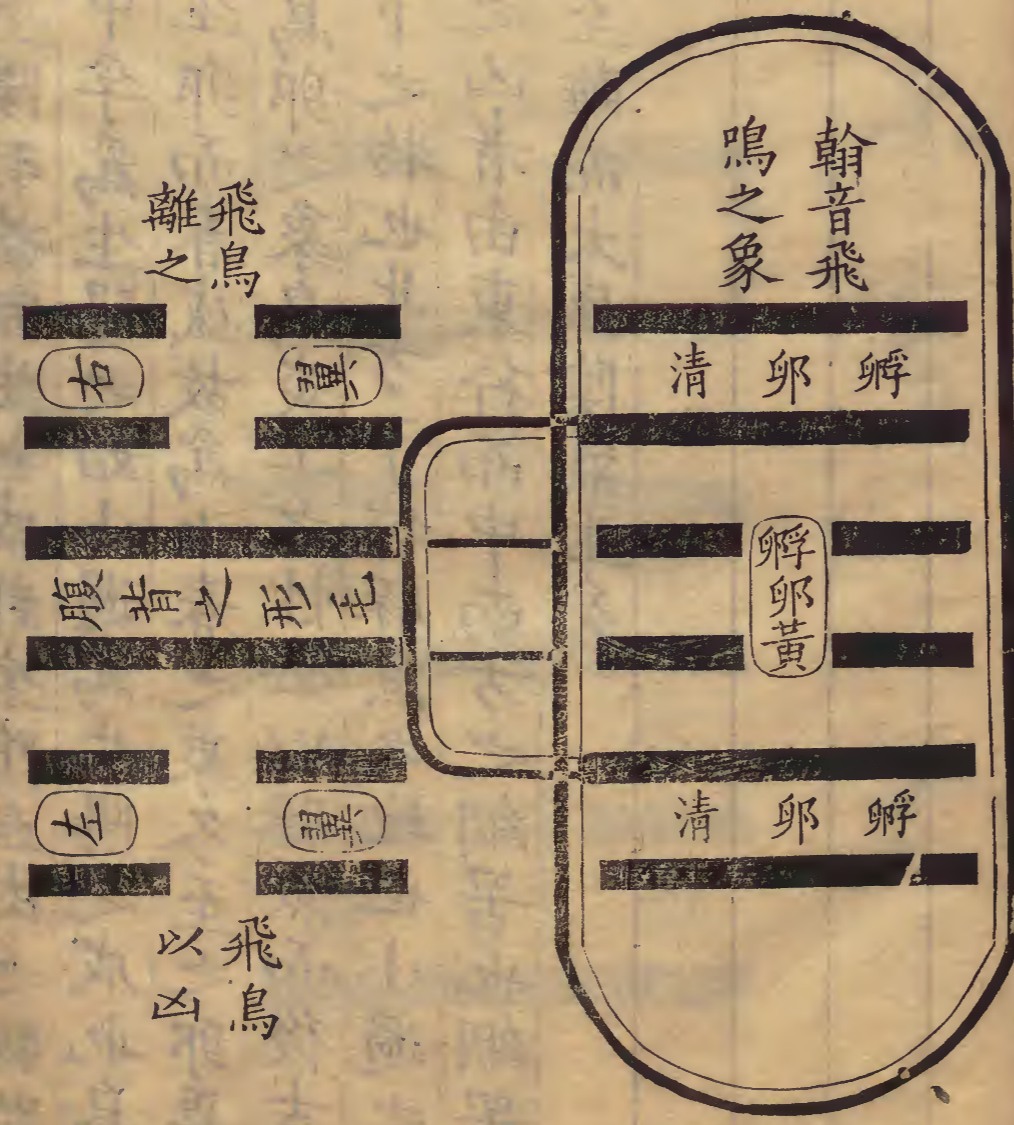 翰音飛
鳴之象
孵卵清
孵卵黃
孵卵清
飛鳥
離之
右翼
腹背之形毛
左翼
飛鳥
以凶